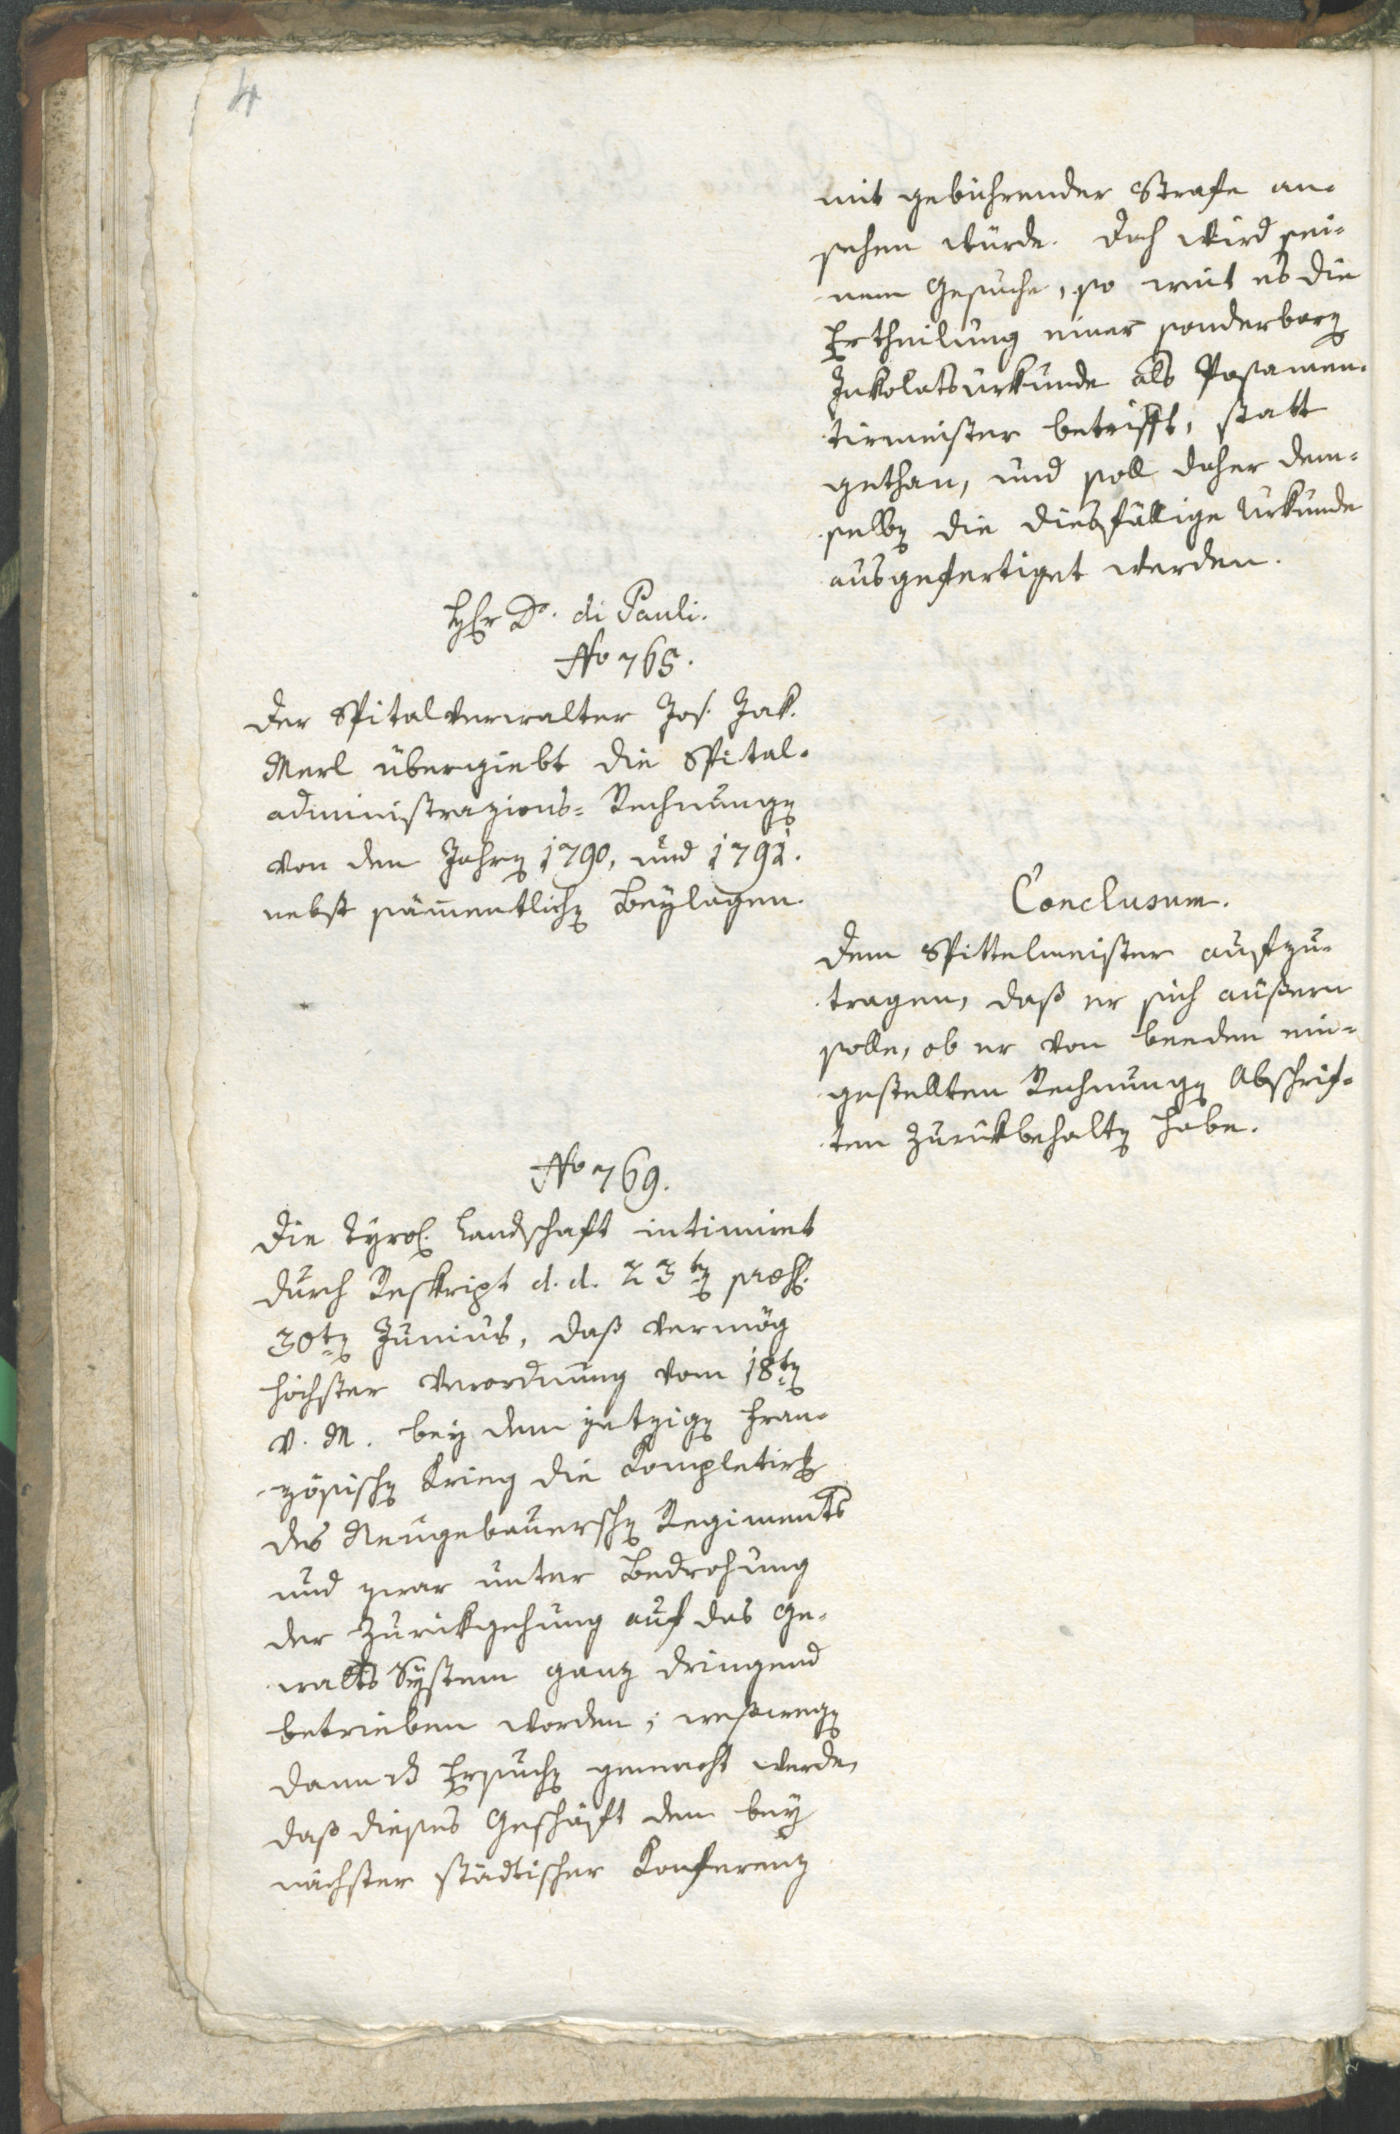 4
mit gebührender Strafe an-
sehen würde. Doch wird sei-
nem Gesuche, so weit es die
Ertheilung einer sonderbaren
Inkolatsurkunde als Posamen-
tirmeister betrifft, statt
gethan, und soll daher dem-
selben die diesfällige Urkunde
ausgefertiget werden.
Hr Dr. di Pauli.
No 768.
Der Spitalverwalter Jos. Jak.
Merl übergiebt die Spital-
administrazions-Rechnungen
von den Jahren 1790, und 1791.
nebst sämmentlichen Beylagen.
Conclusum.
Dem Spittelmeister aufzu-
tragen, daß er sich äußern
solle, ob er von beeden ein-
gestellten Rechnungen Abschrif-
ten zurükbehalten habe.
No 769.
Die Tyrol. Landschaft intimiret
durch Reskript d. d. 23ten præs.
30ten Junius, daß vermög
höchster Verordnung vom 18ten
v. M. bey dem jetzigen Fran-
zösischen Krieg die Kompletirung
des Neugebauerschen Regiments
und zwar unter Bedrohung
der Zurükgehung auf das Ge-
walts System ganz dringend
betrieben worden; weßwegen
dann das Ersuchen gemacht werde,
daß dieses Geschäft dem bey
nächster städtischer Konferenz